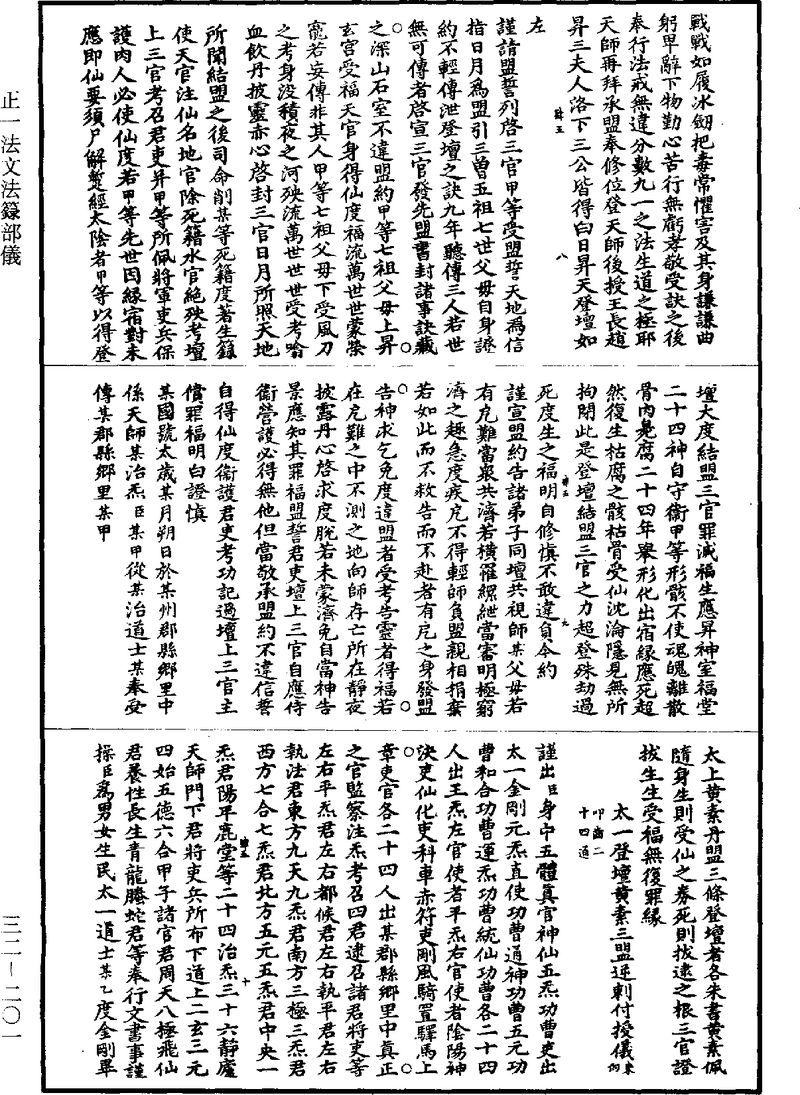 戰戰如履冰劒把毒常懼害及其身謙謙曲
躬卑辭下物勤心苦行無虧孝敬受訣之後
奉行法戒無違分數九一之法生道之極耶
天師再拜承盟奉修位登天師後授王長趙
昇三夫人洛下三公皆得白日昇天登壇如
左
謹請盟誓列啓三官甲等受盟誓天地爲信
指日月爲盟引三曾五祖七世父母自身證
約不輕傳泄登壇之訣九年聽傳三人若世
無可傳者啓宣三官發先盟書封諸事訣藏
之深山石室不違盟約甲等七祖父母上昇
玄宮受福天官身得仙度福流萬世世蒙榮
寵若妄傳非其人甲等七祖父母下受風刀
之考身没積夜之河殃流萬世世世受考喻
血飲丹披靈赤心啓封三官日月所照天地
所聞結盟之後司命削某等死籍度著生籙
使天官注仙名地官除死籍水官絶殃考壇
上三官考召君吏并甲等所佩將軍吏兵保
護肉人必使仙度若甲等先世因緣宿對未
應即仙要須尸解蹔經太陰者甲等以得登
壇大度結盟三官罪滅福生應昇神室福堂
二十四神自守衛甲等形骸不使魂魄離散
骨肉臰腐二十四年舉形化出宿緣應死超
然復生枯腐之骸枯骨受仙沈淪隱見無所
拘閡此是登壇結盟三官之力超登殊劫過
死度生之福明自修愼不敢違負令約
謹宣盟約告諸弟子同壇共視師某父母若
有危難當衆共濟若横罹縲紲當審明極窮
濟之趣急度疾危不得輕師負盟親相捐棄
若如此而不救告而不赴者有危之身發盟
告神求乞免度違盟者受考告靈者得福若
在危難之中不測之地向師存亡所在靜夜
披露丹心啓求度脫若未蒙濟免自當神告
景應知其罪福盟誓君吏壇上三官自應侍
衛營護必得無他但當敬承盟約不違信誓
自得仙度衛護君吏考功記過壇上三官主
償罪福明白證愼
某國號太歲某月朔日於某州郡縣鄉里中
係天師某治炁臣某甲從某治道士某奉受
傳某郡縣鄉里某甲
太上黄素丹盟三條登壇者各朱書黄素佩
隨身生則受仙之券死則拔逮之根三官證
拔生生受福無復罪緣
太一登壇黄素三盟逆刺付授儀
叩齒二
十四通
謹出臣身中五體眞官神仙五炁功曹吏出
太一金剛元炁直使功曹通神功曹五元功
曹和合功曹運炁功曹統仙功曹各二十四
人出王炁左官使者平炁右官使者陰陽神
決吏仙化吏科車赤符吏剛風騎置驛馬上
章吏官各二十四人出某郡縣鄉里中眞正
之官監察注炁考召四君逮召諸君將吏等
左右平炁君左右都候君左右執平君左右
執法君東方九天九炁君南方三極三炁君
西方七合七炁君北方五元五炁君中央一
炁君陽平鹿堂等二十四治炁三十六靜廬
天師門下君將吏兵所布下道上二玄三元
四始五德六合甲子諸官君周天八極飛仙
君養性長生青龍騰蛇君等奉行文書事謹
操臣爲男女生民太一道士某乙度金剛畢
正一法文法籙部儀
三二—二〇一